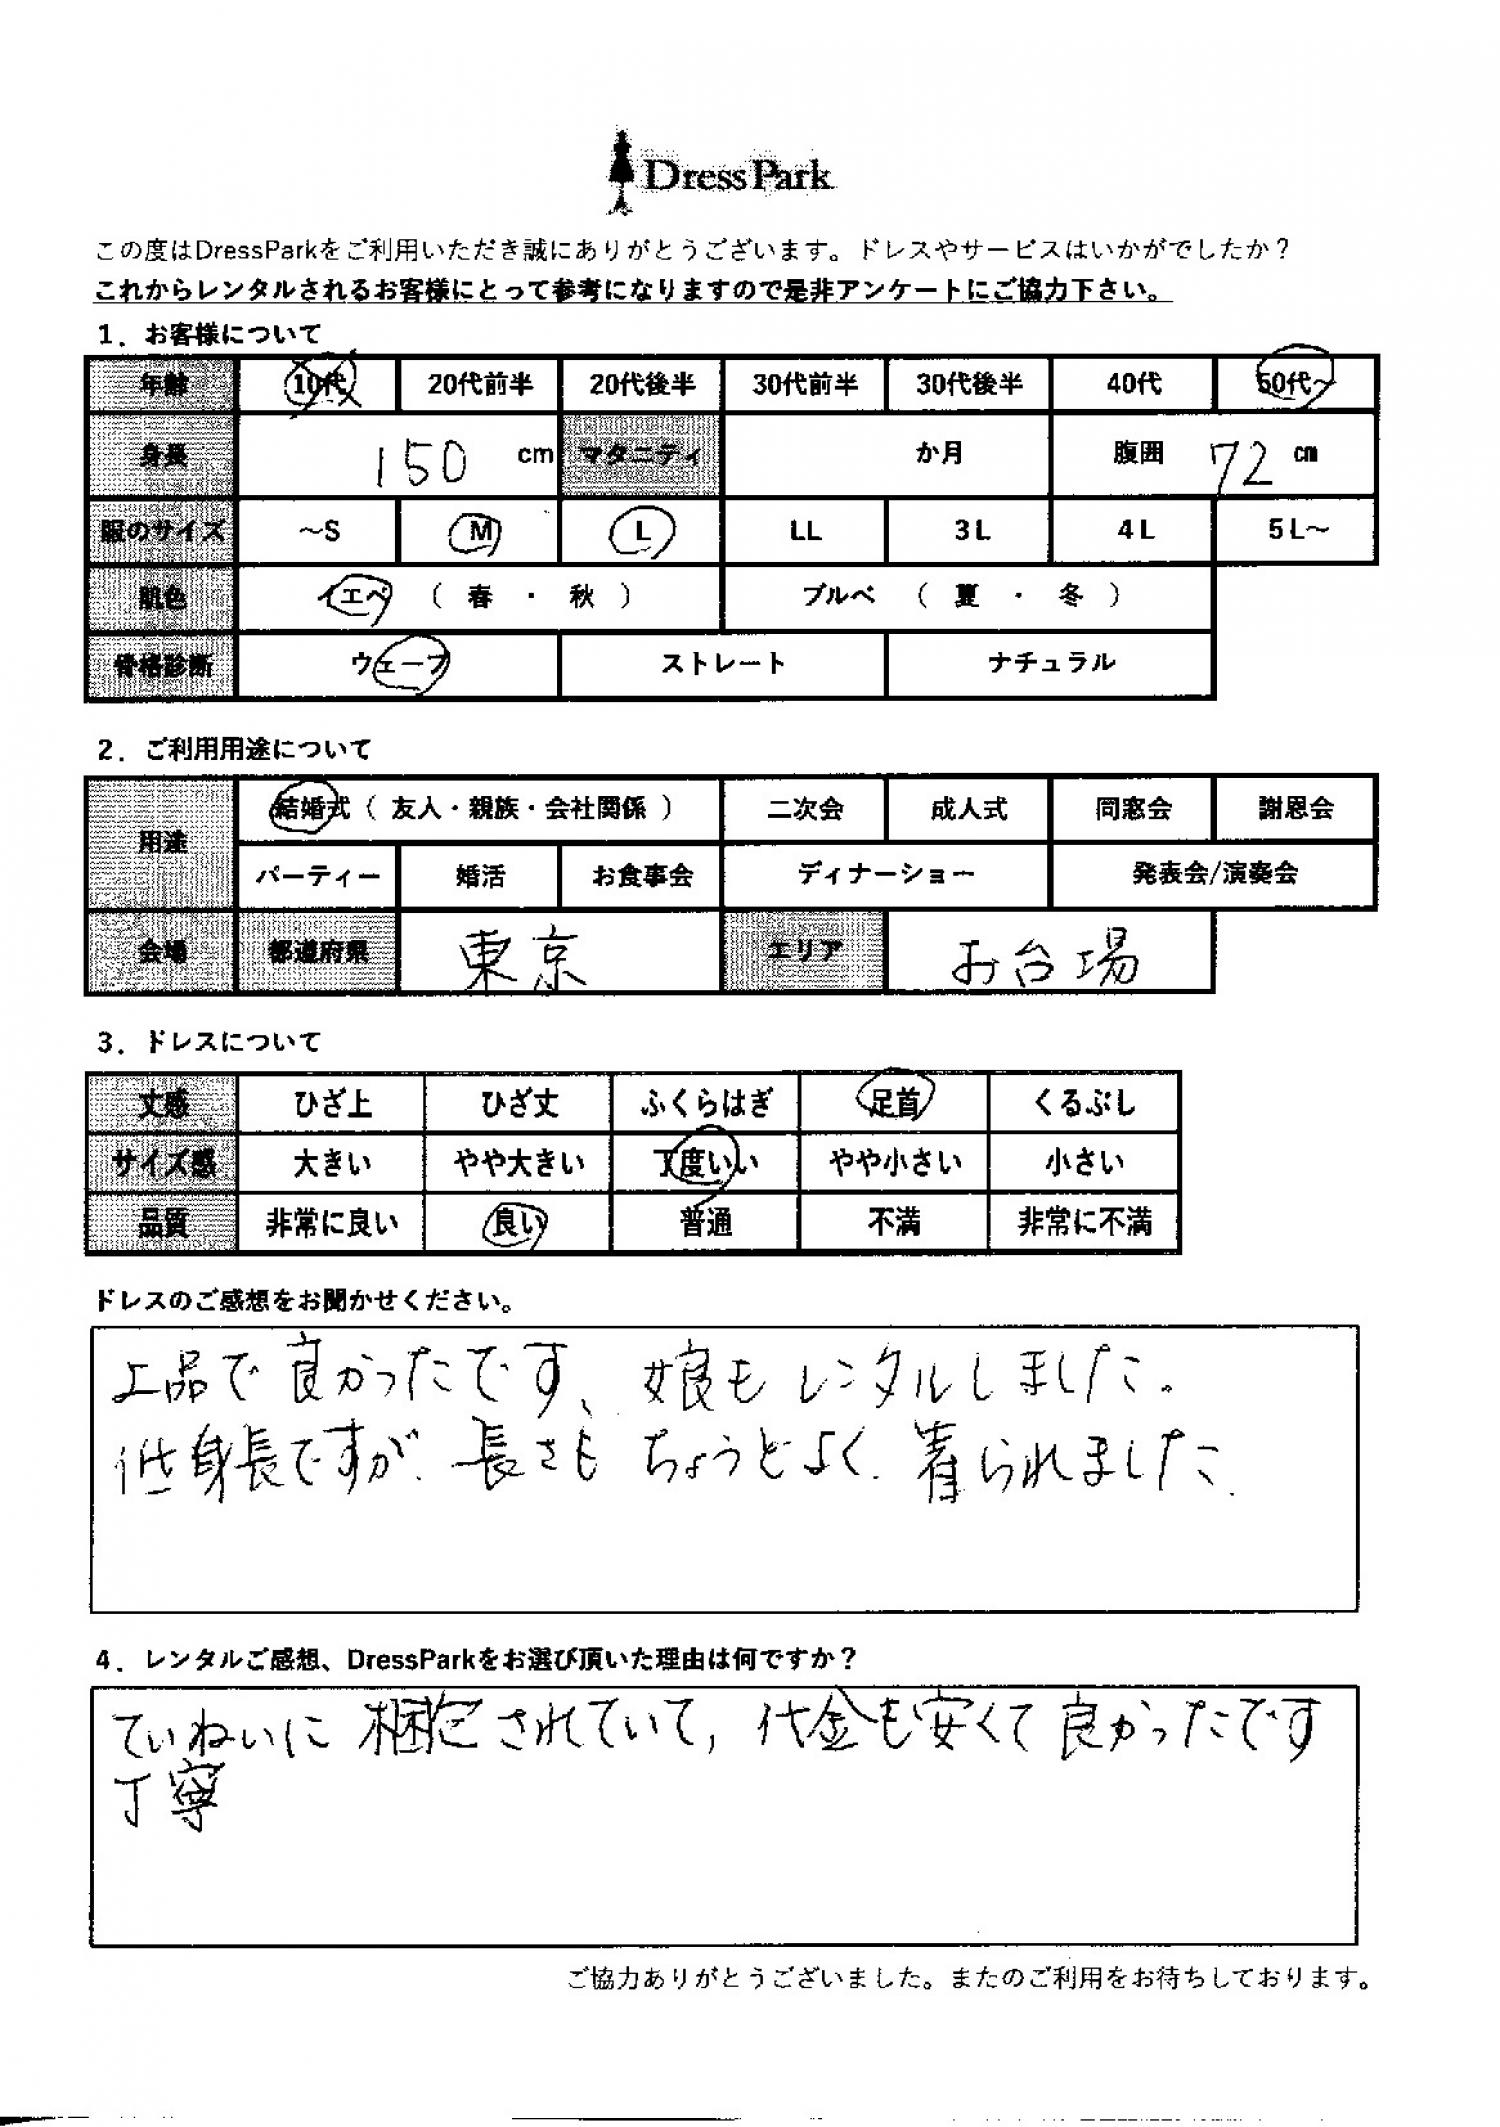 DressPark
この度はDressParkをご利用いただき誠にありがとうございます。ドレスやサービスはいかがでしたか？
これからレンタルされるお客様にとって参考になりますので是非アンケートにご協力下さい。
1．お客様について
年齢 10代 20代前半 20代後半 30代前半 30代後半 40代 50代～
身長 150 cm マタニティ か月 腹囲 72 cm
服のサイズ ～S M L LL 3L 4L 5L～
肌色 イエベ （ 春 ・ 秋 ） ブルベ （ 夏 ・ 冬 ）
骨格診断 ウェーブ ストレート ナチュラル
2．ご利用用途について
用途 結婚式（ 友人・親族・会社関係 ） 二次会 成人式 同窓会 謝恩会
パーティー 婚活 お食事会 ディナーショー 発表会/演奏会
会場 都道府県 東京 エリア お台場
3．ドレスについて
丈感 ひざ上 ひざ丈 ふくらはぎ 足首 くるぶし
サイズ感 大きい やや大きい 丁度いい やや小さい 小さい
品質 非常に良い 良い 普通 不満 非常に不満
ドレスのご感想をお聞かせください。
上品で良かったです、娘もレンタルしました。
低身長ですが、長さもちょうどよく、着られました。
4．レンタルご感想、DressParkをお選び頂いた理由は何ですか？
ていねいに梱包されていて，代金も安くて良かったです
丁寧
ご協力ありがとうございました。またのご利用をお待ちしております。